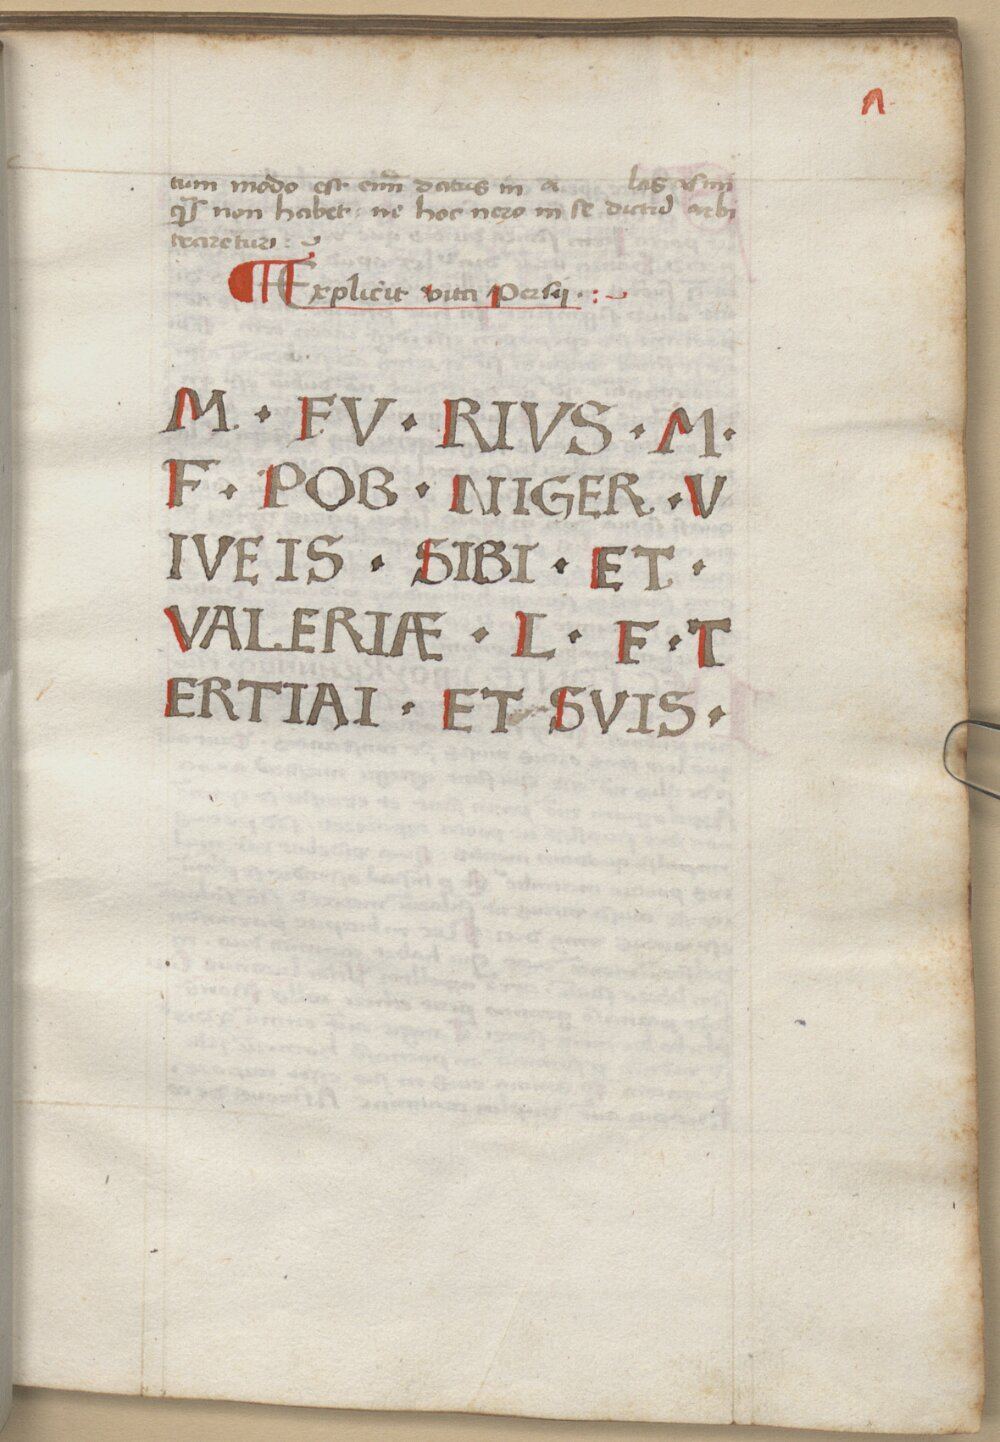 Λ
tum modo est eni͞m datus in a las asini
q͞s non habet: ne hoc nero in se dictu͞ arbi
traretur:
¶ Explicit vita Persij . :
M · FV · RIVS · M ·
F · POB · NIGER · V
IVEIS · SIBI · ET ·
VALERIÆ · L · F · T
ERTIAI · ET SVIS ·